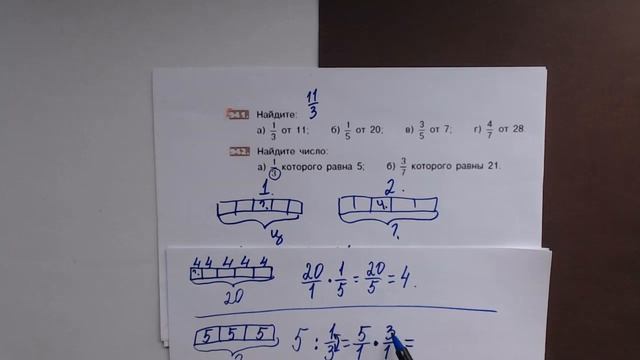 11/3
941. Найдите:
а) 1/3 от 11; б) 1/5 от 20; в) 3/5 от 7; г) 4/7 от 28.
942. Найдите число:
а) 1/3 которого равна 5; б) 3/7 которого равны 21.
1. 2.
?. ч.
ц ?.
4 4 4 4 4
?.
20
20/1 · 1/5 = 20/5 = 4.
5 5 5
5 : 1/3 = 5/1 · 3/1 =